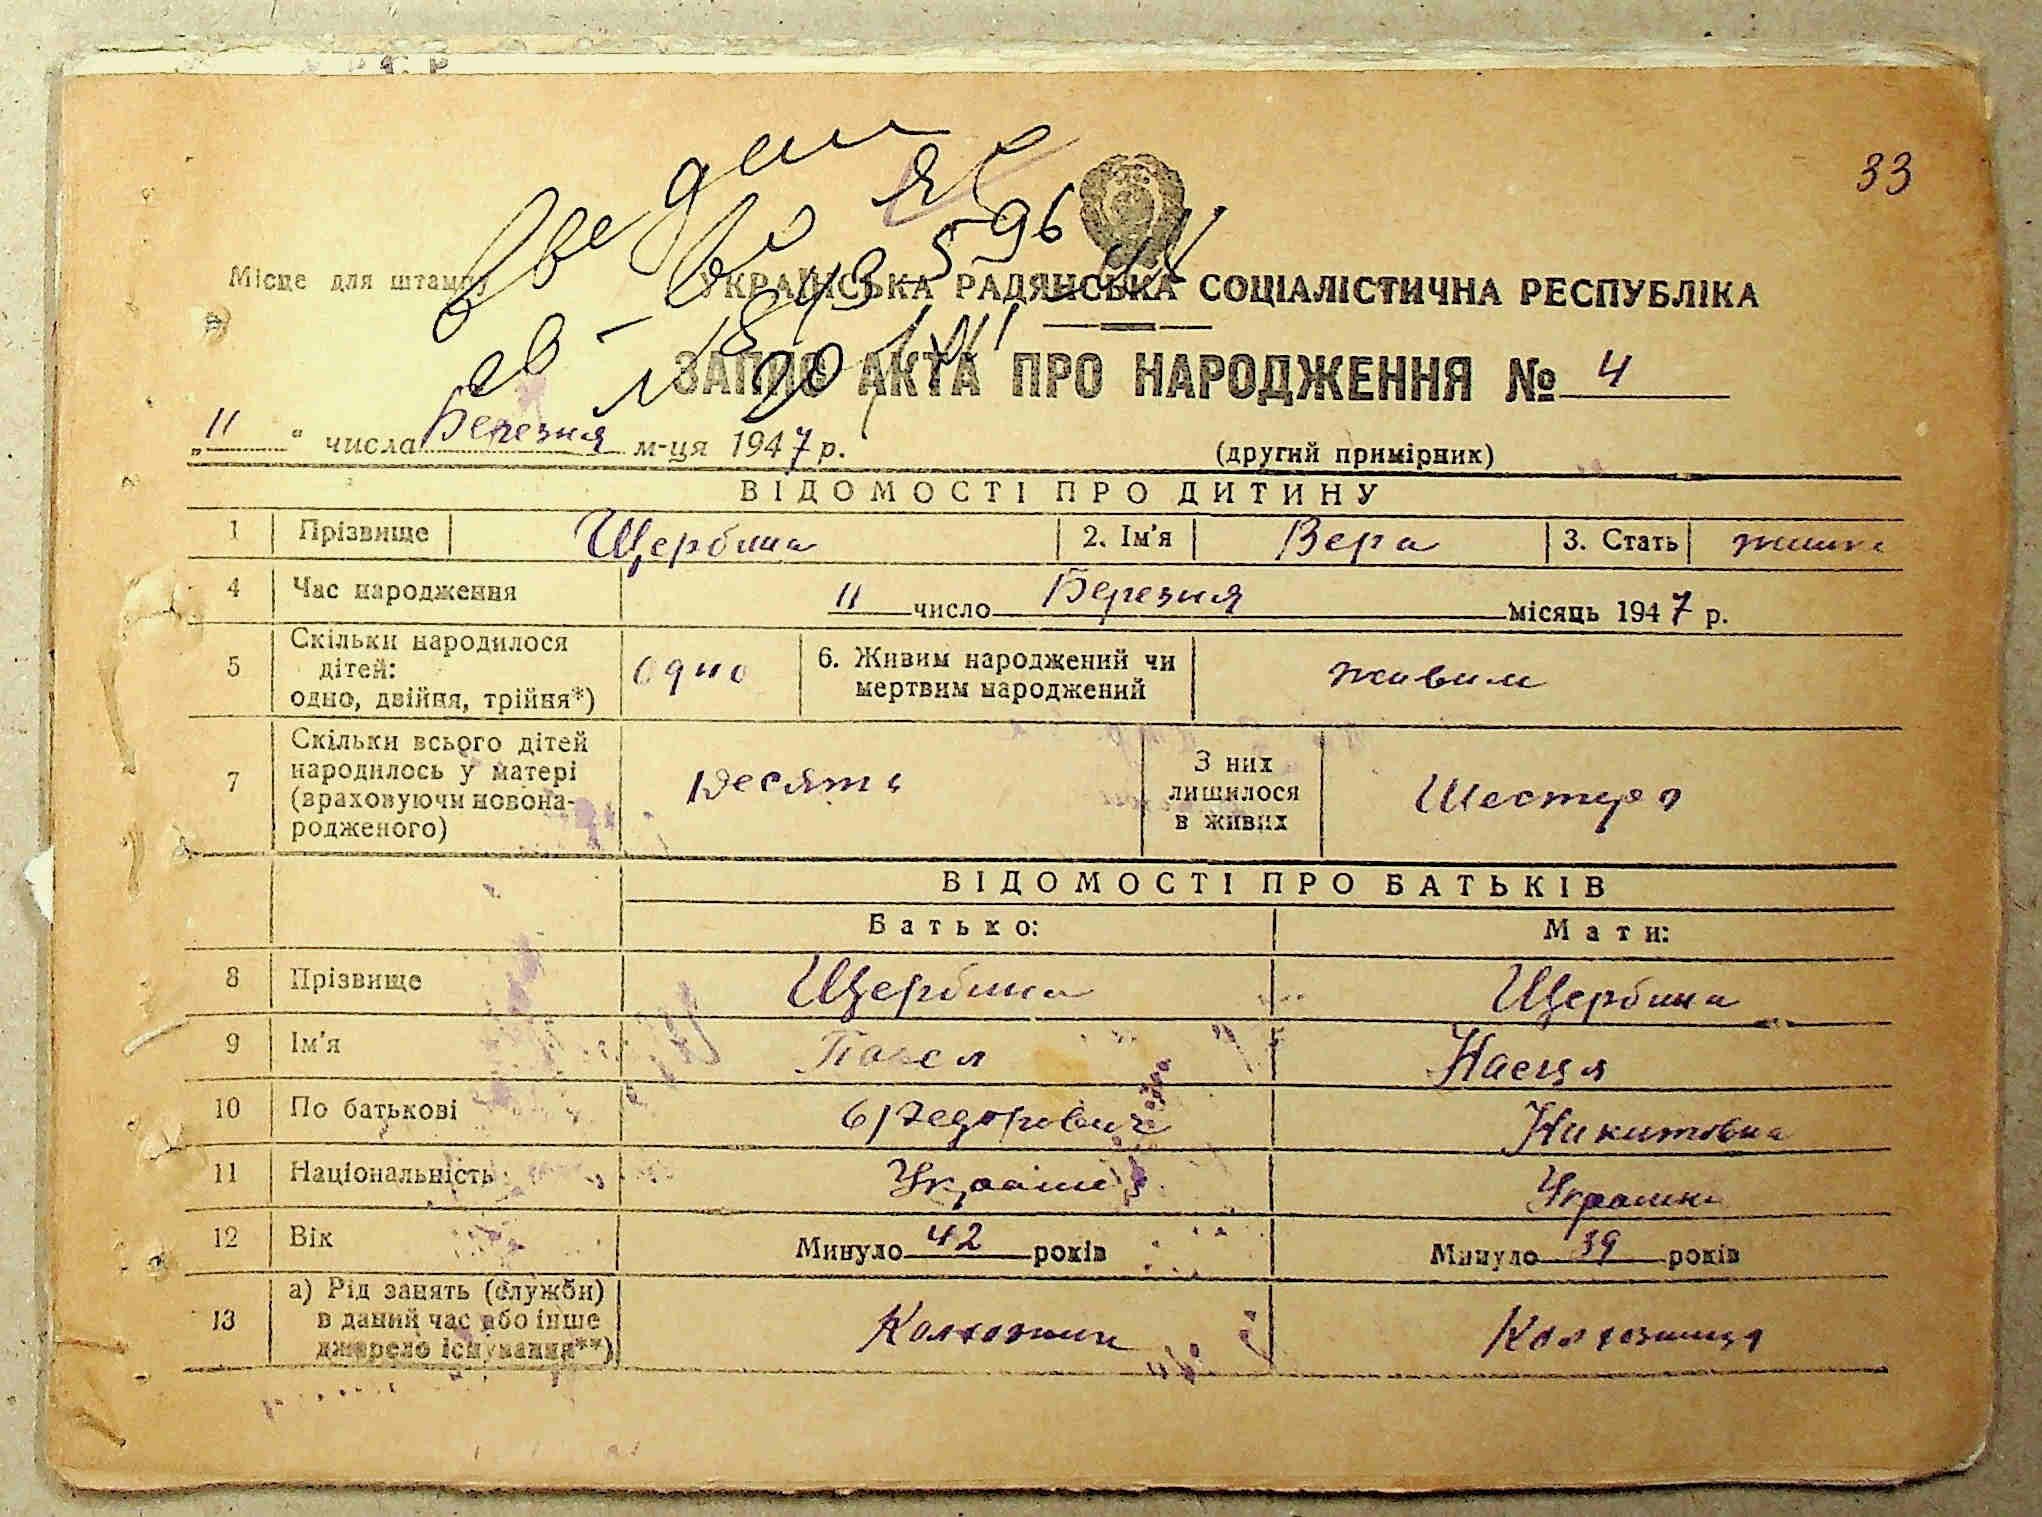 33
Місце для штампу
УКРАЇНСЬКА РАДЯНСЬКА СОЦІАЛІСТИЧНА РЕСПУБЛІКА
ЗАПИС АКТА ПРО НАРОДЖЕННЯ № 4
„11" числа Березня м-ця 1947 р.
(другий примірник)
ВІДОМОСТІ ПРО ДИТИНУ
1 Прізвище Щербина 2. Ім'я Вера 3. Стать
4 Час народження 11 число Березня місяць 1947 р.
5 Скільки народилося дітей: одно, двійня, трійня*) одно 6. Живим народжений чи мертвим народжений живим
7 Скільки всього дітей народилось у матері (враховуючи новонародженого) Десять З них лишилося в живих Шестеро
ВІДОМОСТІ ПРО БАТЬКІВ
Батько: Мати:
8 Прізвище Щербина Щербина
9 Ім'я Павел Настя
10 По батькові Никитовна
11 Національність
12 Вік Минуло 42 років Минуло 39 років
13 а) Рід занять (служби) в даний час або інше джерело існування**) Колхозник Колхозниця